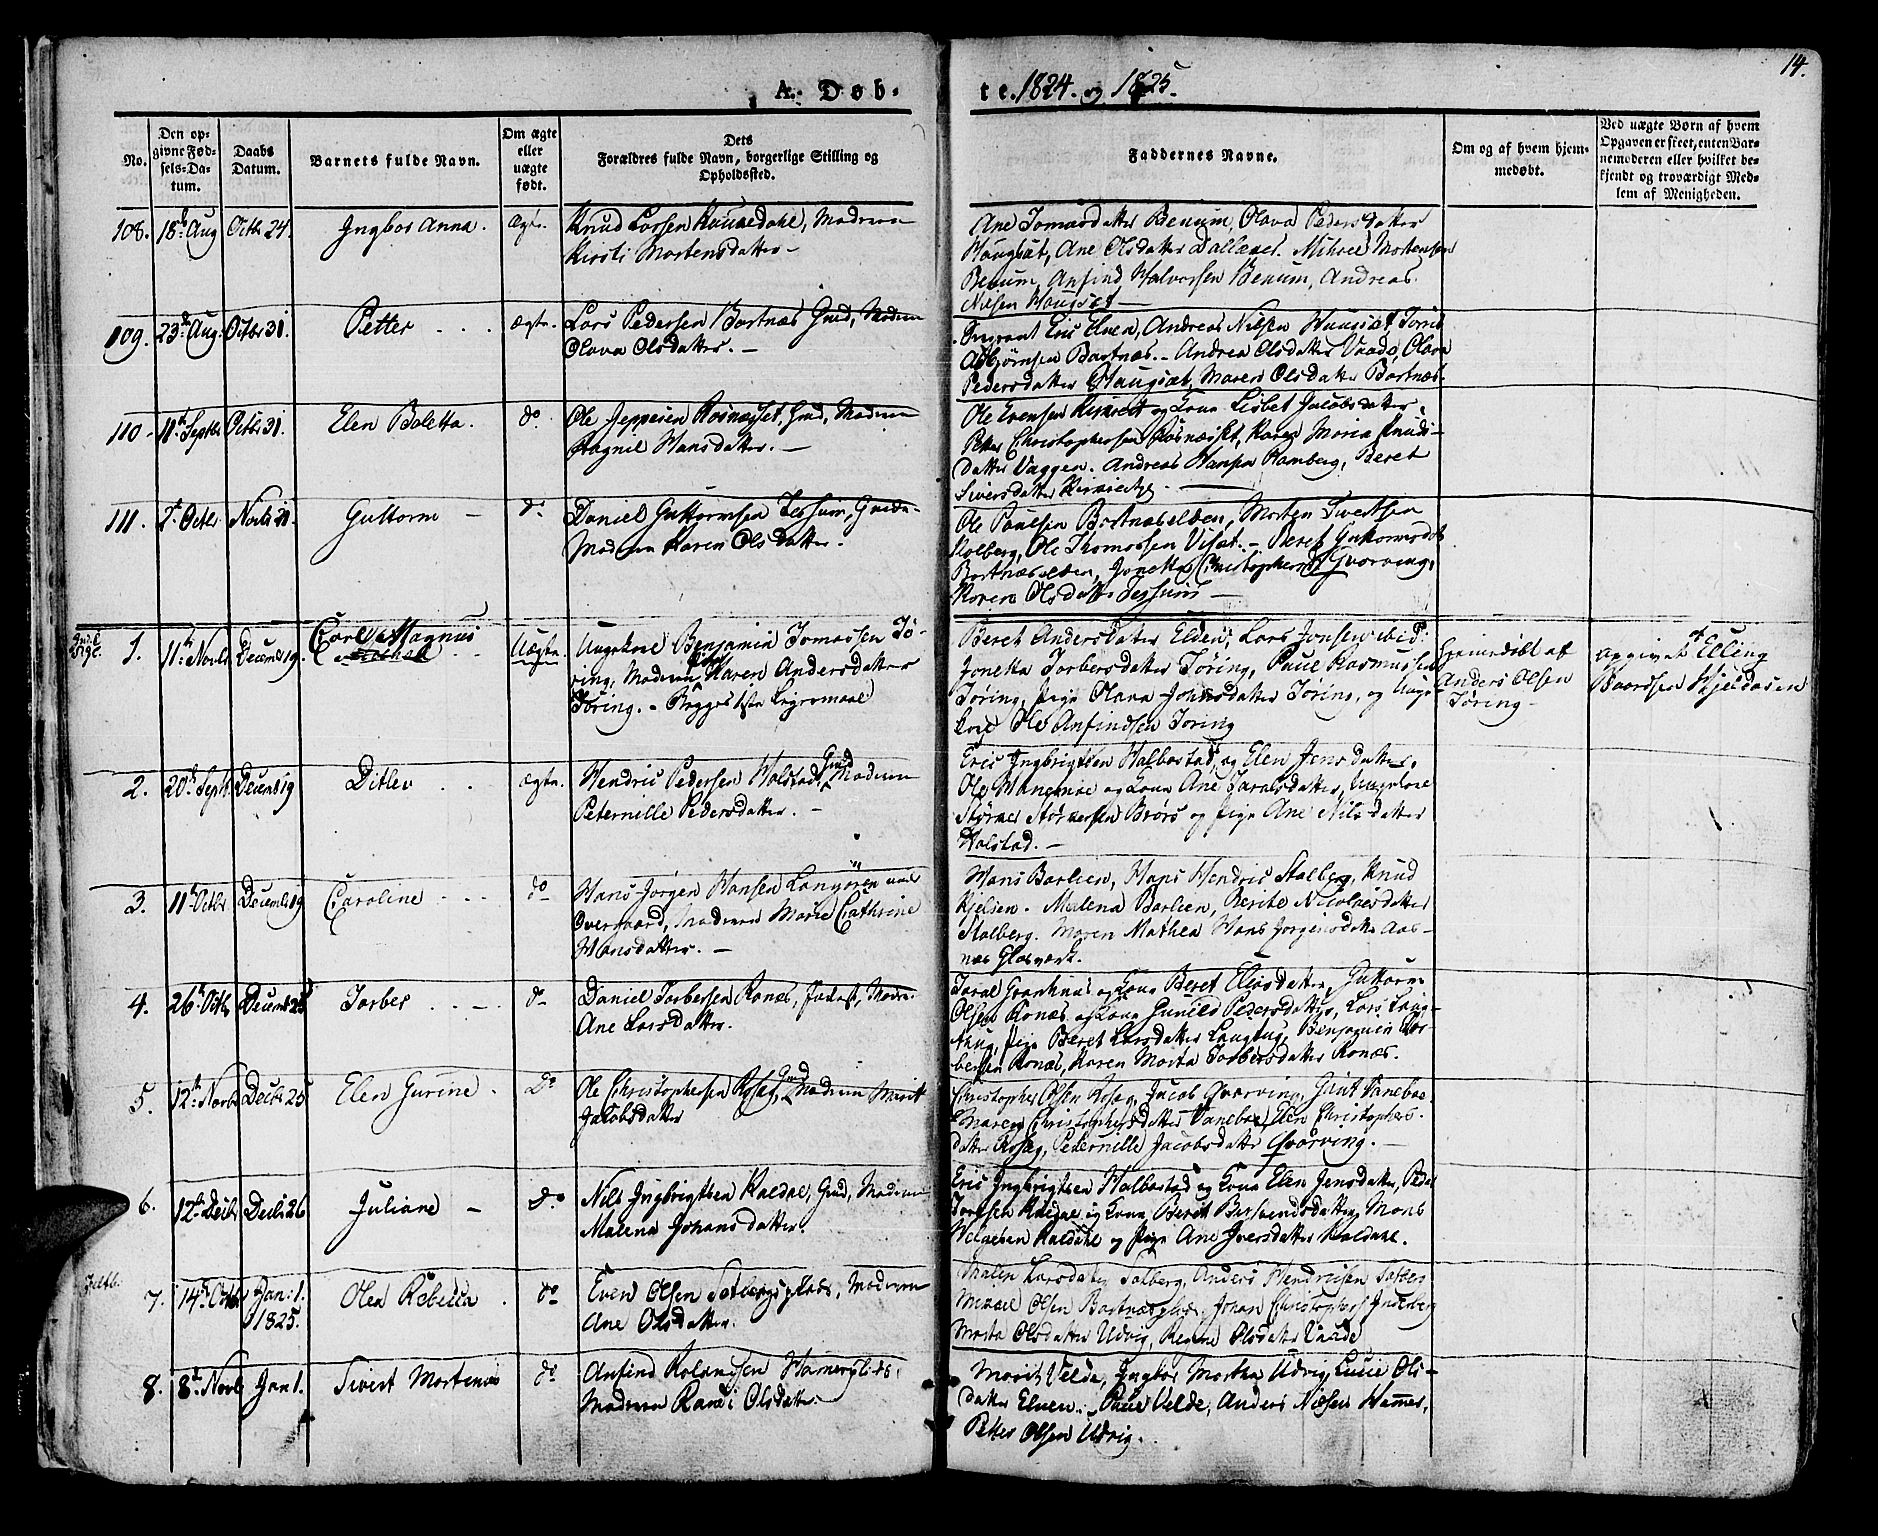 14.
A. Døb-
te. 1824. og 1825.
No.
Den op-
givne Fød-
sels-Da-
tum.
Daabs
Datum.
Barnets fulde Navn.
Om ægte
eller
uægte
født.
Dets
Forældres fulde Navn, borgerlige Stilling og
Opholdssted.
Faddernes Navne.
Om og af hvem hjem-
medøbt.
Ved uægte Børn af hvem
Opgaven er skeet, enten Bar-
nemoderen eller hvilket be-
kjendt og troværdigt Med-
lem af Menigheden.
108. 18de Aug Octbr 24. Ingbor Anna. Ægte. Knud Larsen Kaldahl, Moderen
Kirsti Mortensdatter -
Ane Tomasdatter Benum, Olava Pedersdatter
Haugsæt, Ane Olsdatter Mikael Mortensen
Benum, Anfind Halvorsen Benum, Andreas
Nilsen Haugsæt -
109. 23de Aug. Octbr 31. Petter ægte. Lars Pedersen Bartnæs Gmd, Moderen
Olava Olsdatter. -
Eric Elven, Andreas Nilsen Haugsæt,
Asbjørnsen Bartnæs. - Andrea Olsdatter Vaade, Olava
Pedersdatter Haugsæt, Maren Olsdatter Bartnæs.
110 - 11te Septbr Octbr 31. Elen Boletta. do. Ole Jeppesen Gmd, Moderen
Ragnil Hansdatter. -
Ole Evensen og Kona Lisbet Jacobsdatter,
Petter Christophersen Karen Maria Knuds-
datter Vaggen. Andreas Hansen Hamberg, Beret
Siversdatter
111. 2de Octbr Novbr 21. Guttorm - do. Daniel Guttormsen Tessum, Gmd,
Moderen Karen Olsdatter.
Ole Paulsen Bartnæselden, Morten Sivertsen
Kolberg, Ole Thomassen - Beret Guttormsdt
Bartnæselden, Jonetta Christophersd Qvarving,
Karen Olsdatter Tessum -
1. 11te Novbr Decembr 19. Carl Magnus Uægte. Ungekarl Benjamin Tomassen Tø-
ring, Moderen Karen Andersdatter
Tøring. - Begges 1ste Leiermaal
Beret Andersdatter Elden, Lars Jonsen ibid:
Jonetta Torbersdatter Tøring, Paul Rasmussen
Tøring, pige Olava Johnsdatter Tøring, og Unge-
karl Ole Anfindsen Tøring
Hjemmedøbt af
Anders Olsen
Tøring -
opgivet af Elling
Baardsen Hjeldasen
2. 20de Sept. Decembr 19 Ditlev ægte. Hendric Pedersen Halstad, Gmd, Moderen
Peternille Pedersdatter. -
Eric Ingbrigtsen Halbostad, og Elen Jensdatter,
Ole og Kona Ane Taralsdatter, Ungekarl
Størker Størkersen Brørs og pige Ane Nilsdatter
Halstad. -
3. 11te Octbr Decembr 19 Caroline do Hans Jørgen Hansen Langøren ved
Overgaard, Moderen Marie Cathrine
Hansdatter. -
Hans Barlien, Hans Hendric Stalberg, Knud
Kjelsen. Malena Barlien, Berite Nicolaisdatter
Stalberg. Maren Mathea Hans Jørgensdatter Aas-
næs Glasværk.
4. 26de Octbr Decembr 25 Torber do Daniel Torbersen Ronæs, Inderst, Moderen
Ane Larsdatter.
Taral og Kona Beret Eliasdatter, Guttorm
Olsen Ronæs og Kona Gunild Pedersdatter, Lars Lang-
haug, pige Beret Larsdatter Langhaug, Benjamin Tor-
bersen Ronæs, Karen Marta Torbersdatter Ronæs.
5. 12te Novbr Decbr 25 Elen Gurine. Do Ole Christophersen Rosæg, Gmd Moderen Marit
Jacobsdatter
Christopher Olsen Rosæg, Jacob Qvarving,
Maren Christophersdatter Elen Christophers-
datter Rosæg, Peternille Jacobsdatter Qvarving. -
6. 12te Decbr Decbr 26 Juliane - Do Nils Ingbrigtsen Kaldal, Gmd, Moderen
Malena Johansdatter.
Eric Ingbrigtsen Halbostad og Kona Elen Jensdatter, Peder
Kaldal og Kona Beret Mons
Kaldahl og pige Ane Iversdatter Kaldahl.
7. 14de Octbr Jan: 1.
1825. Olea Rebecca . do Even Olsen Moderen
Ane Olsdatter.
Malen Larsdatter Solberg, Anders Hendricsen
Mikael Olsen Johan Christophers Inderberg
Marta Olsdatter Udvig, Regine Olsdatter Vaade
8. 8de Novb Jan 1. Sivert Mortenius do Anfind Rolandsen
Moderen Randi Olsdatter.
Marit Velde, Ingbor Martha Udvig, Lucie Ols-
datter Elven. Paul Velde, Anders Nielsen Hammer,
Petter Olsen Udvig.